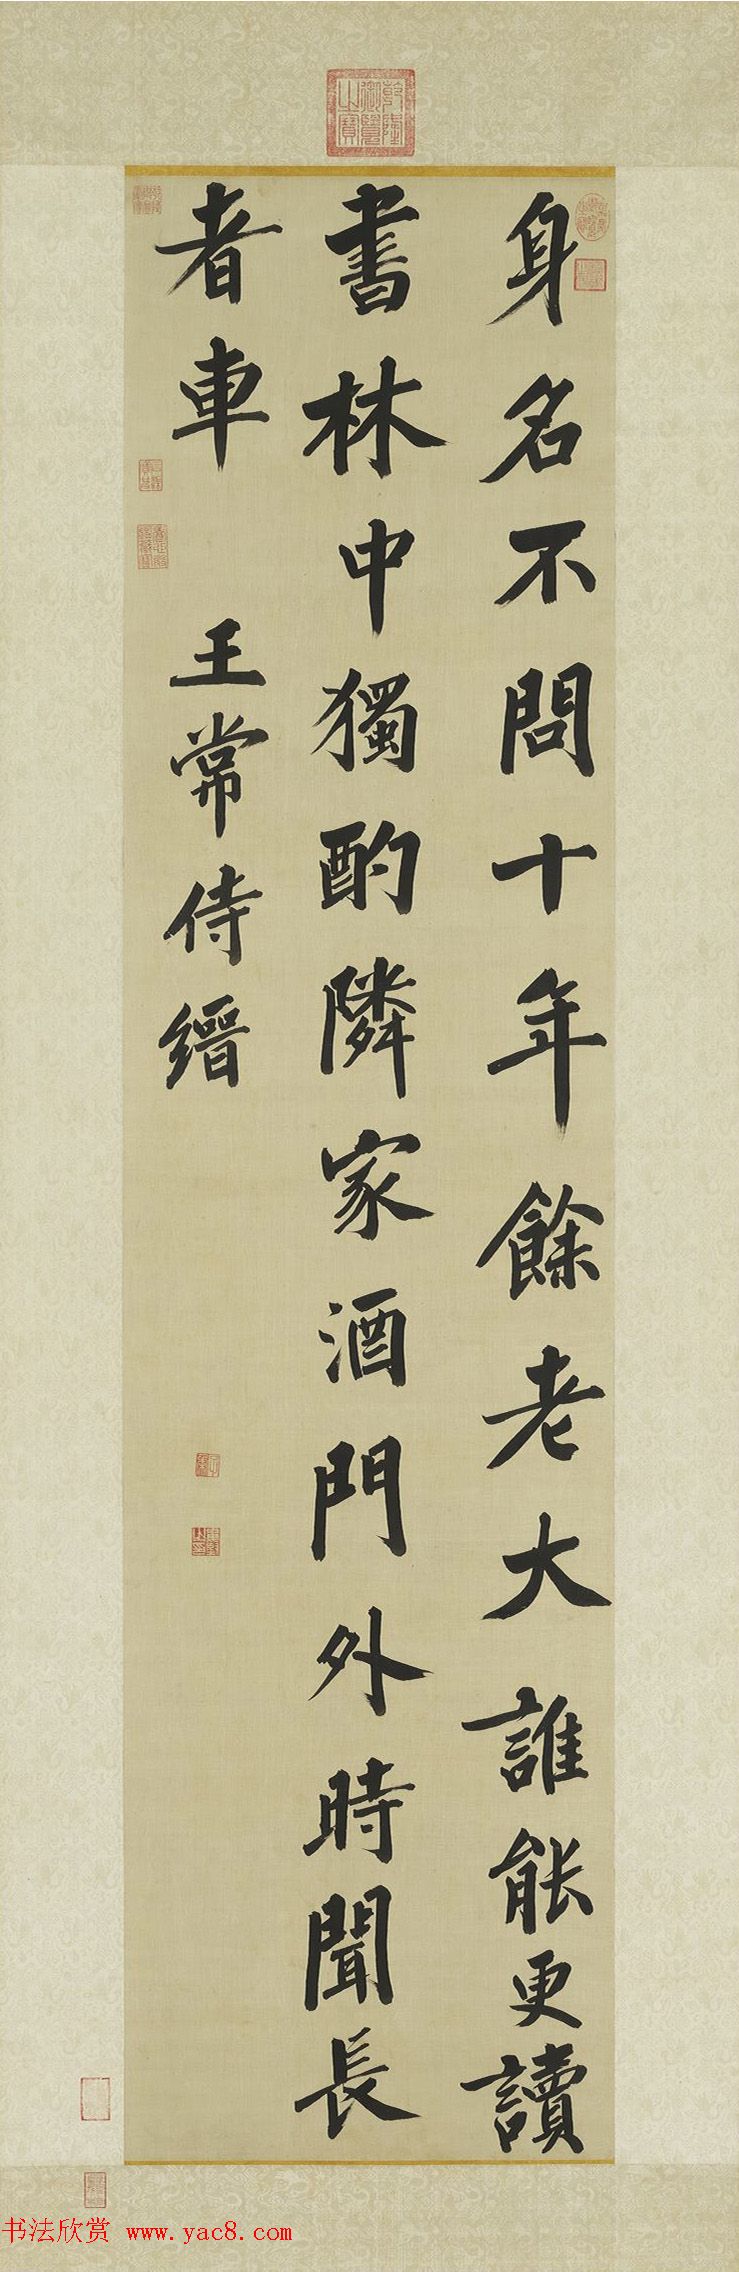 乾隆御覽之寶
身名不問十年餘老大誰能更讀
書林中獨酌隣家酒門外時聞長
者車 王常侍縉
书法欣赏 www.yac8.com